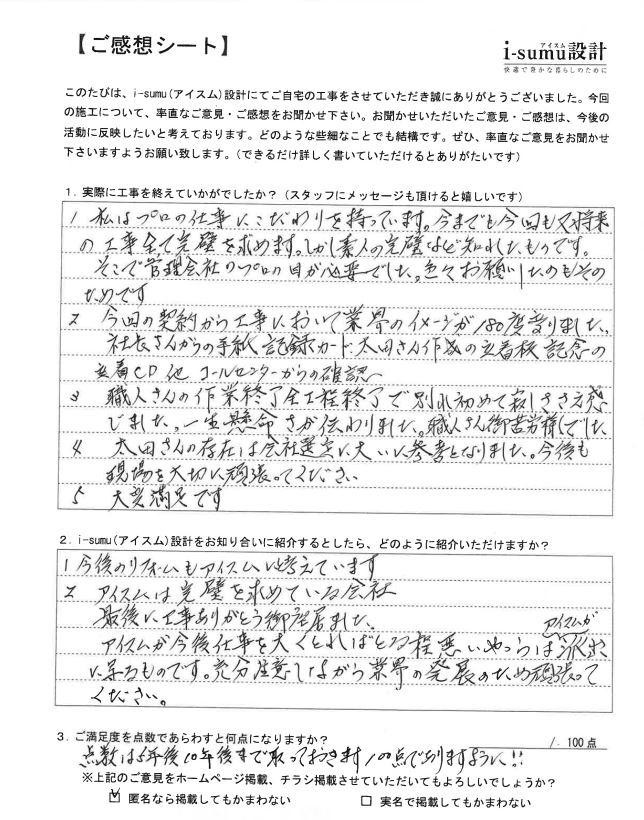 【ご感想シート】
アイスム
i-sumu設計
快適で豊かな暮らしのために
このたびは、i-sumu(アイスム)設計にてご自宅の工事をさせていただき誠にありがとうございました。今回
の施工について、率直なご意見・ご感想をお聞かせ下さい。お聞かせいただいたご意見・ご感想は、今後の
活動に反映したいと考えております。どのような些細なことでも結構です。ぜひ、率直なご意見をお聞かせ
下さいますようお願い致します。(できるだけ詳しく書いていただけるとありがたいです)
1. 実際に工事を終えていかがでしたか?(スタッフにメッセージも頂けると嬉しいです)
1 私はプロの仕事にこだわりを持っています。今までも今回も又将来
の工事全て完璧を求めます。しかし素人の完璧など知れたものです。
そこで管理会社のプロの目が必要でした。色々お願いしたのもその
ためです
2 今回の契約から工事において業界のイメージが180度変りました。
社長さんからの手紙 記録カード 太田さん作成の立看板 記念の
CD 他 コールセンターからの確認
3 職人さんの作業終了全工程終了で別れ初めて寂しささえ感
じました。一生懸命さが伝わりました。職人さん御苦労様でした
4 太田さんの存在は会社選定に大いに参考となりました。今後も
現場を大切に頑張ってください
5 大変満足です
2. i-sumu(アイスム)設計をお知り合いに紹介するとしたら、どのように紹介いただけますか?
1 今後のリフォームもアイスムに考えています
2 アイスムは完璧を求めている会社
最後に工事ありがとう御座居ました。
アイスムが
アイスムが今後仕事を大くとればとる程悪いやつらは
に来るものです。充分注意しながら業界の発展のため頑張って
ください。
3. ご満足度を点数であらわすと何点になりますか?
/ 100点
点数は5年後10年後まで取っておきます100点でありますように!!
※上記のご意見をホームページ掲載、チラシ掲載させていただいてもよろしいでしょうか?
☑ 匿名なら掲載してもかまわない
□ 実名で掲載してもかまわない